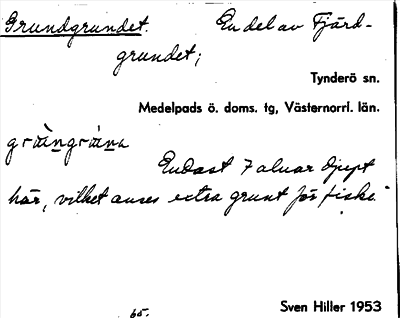 Grundgrundet. En del av Fjärd-
grundet;
Tynderö sn.
Medelpads ö. doms. tg, Västernorrl. län.
Endast 7 alnar djupt
här, vilket anses extra grunt för fiske.
65.
Sven Hiller 1953